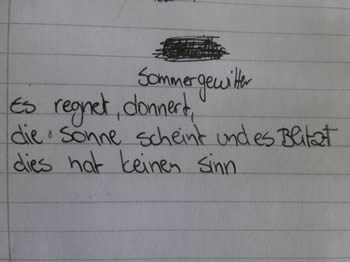 Sommergewitter
Es regnet, donnert,
die Sonne scheint und es Blitzt
dies hat keinen sinn